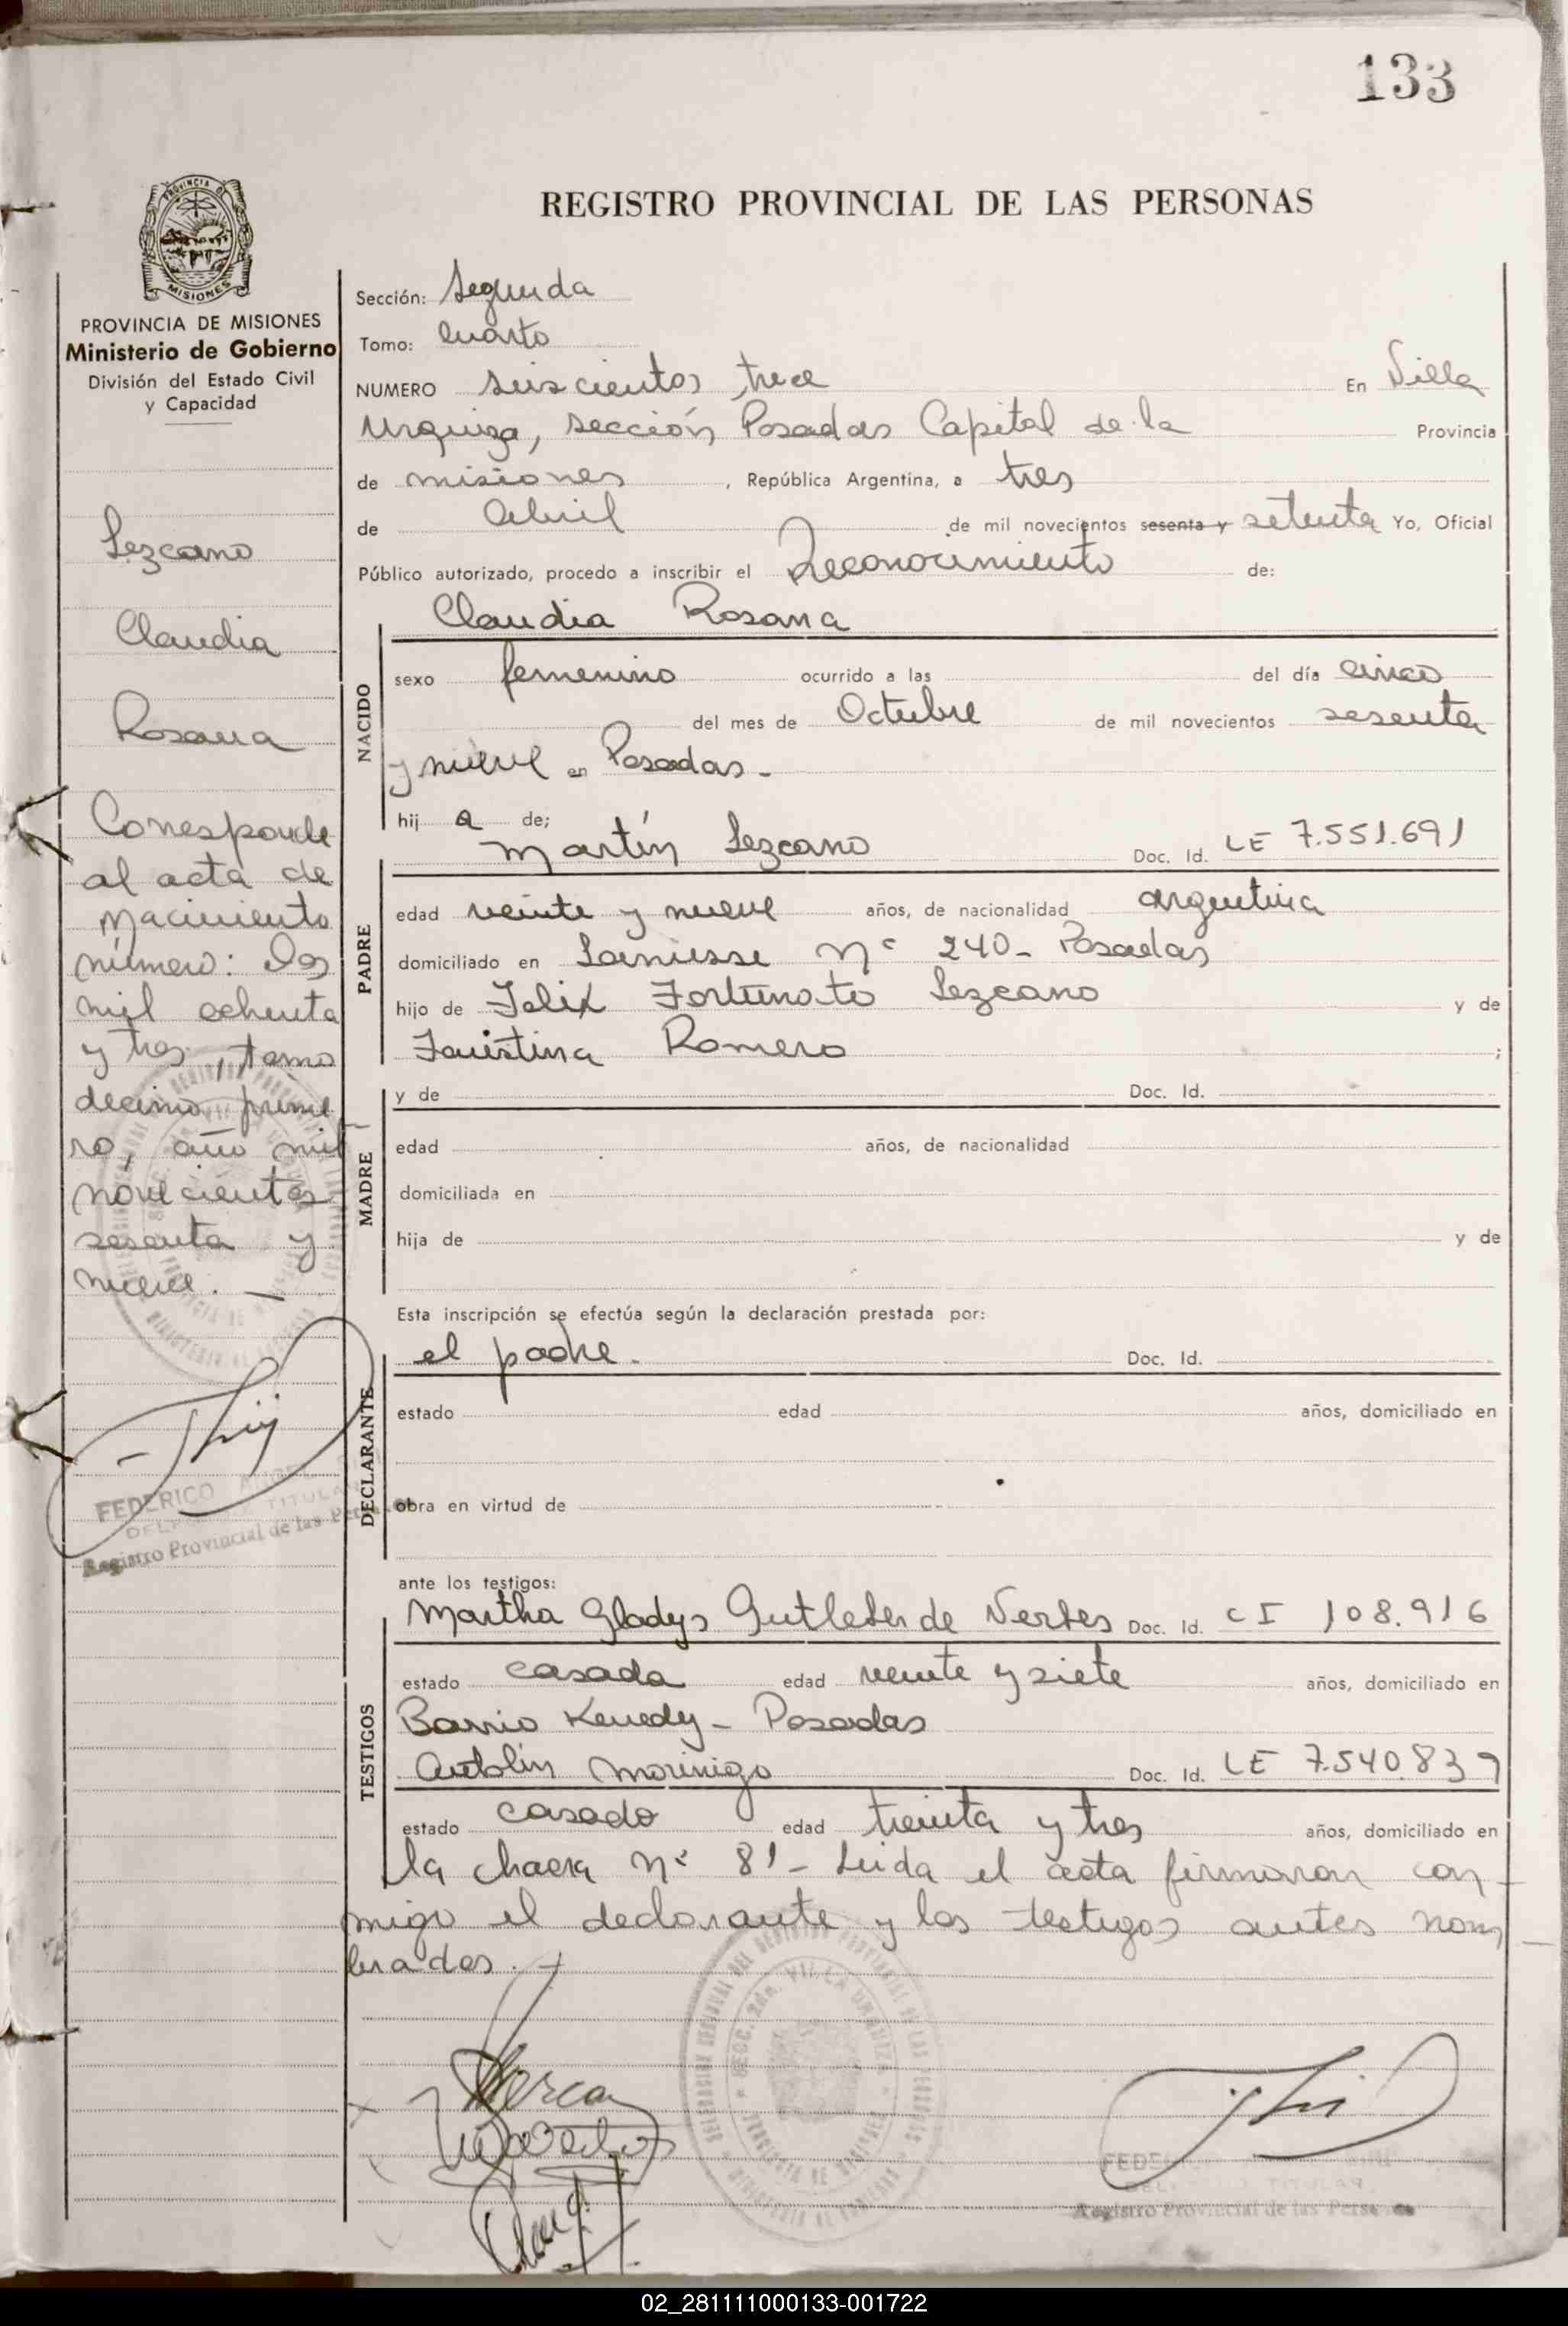 133
REGISTRO PROVINCIAL DE LAS PERSONAS
PROVINCIA DE
MISIONES
PROVINCIA DE MISIONES
Ministerio de Gobierno
División del Estado Civil
y Capacidad
Lezcano
Claudia
Rosana
Corresponde
al acta de
Nacimiento
número: Dos
mil ochenta
y tres, tomo
decimo prime
ro, año mil
novecientos
sesenta y
nueve. —
FEDERICO
TITULAR
Registro Provincial de las Personas
Sección: Segunda
Tomo: Cuarto
NUMERO seiscientos trece En Villa
Urquiza, sección Posadas Capital de la Provincia
de misiones, República Argentina, a tres
de Abril de mil novecientos sesenta y setenta Yo, Oficial
Público autorizado, procedo a inscribir el Reconocimiento de:
Claudia Rosana
NACIDO
sexo femenino ocurrido a las del día cinco
del mes de Octubre de mil novecientos sesenta
y nueve en Posadas -
hij a de;
PADRE
Martín Lezcano Doc. Id. LE 7.551.691
edad veinte y nueve años, de nacionalidad argentina
domiciliado en Nº 240 - Posadas
hijo de Felix Fortunato Lezcano y de
Faustina Romero ;
MADRE
y de Doc. Id.
edad años, de nacionalidad
domiciliada en
hija de y de
Esta inscripción se efectúa según la declaración prestada por:
DECLARANTE
el padre. Doc. Id.
estado edad años, domiciliado en
obra en virtud de
ante los testigos:
TESTIGOS
Martha Gladys de Doc. Id. CI 108.916
estado casada edad veinte y siete años, domiciliado en
Barrio Kenedy - Posadas
Antolín Morinigo Doc. Id. LE 7.540.839
estado casado edad treinta y tres años, domiciliado en
la chacra Nº 81 - Leida el acta firmaron con
migo el declarante y los testigos antes nom
brados.
SECC. 2da. VILLA URQUIZA
PROVINCIA DE MISIONES
MINISTERIO DE GOBIERNO
TITULAR
Registro Provincial de las Personas
02_281111000133-001722